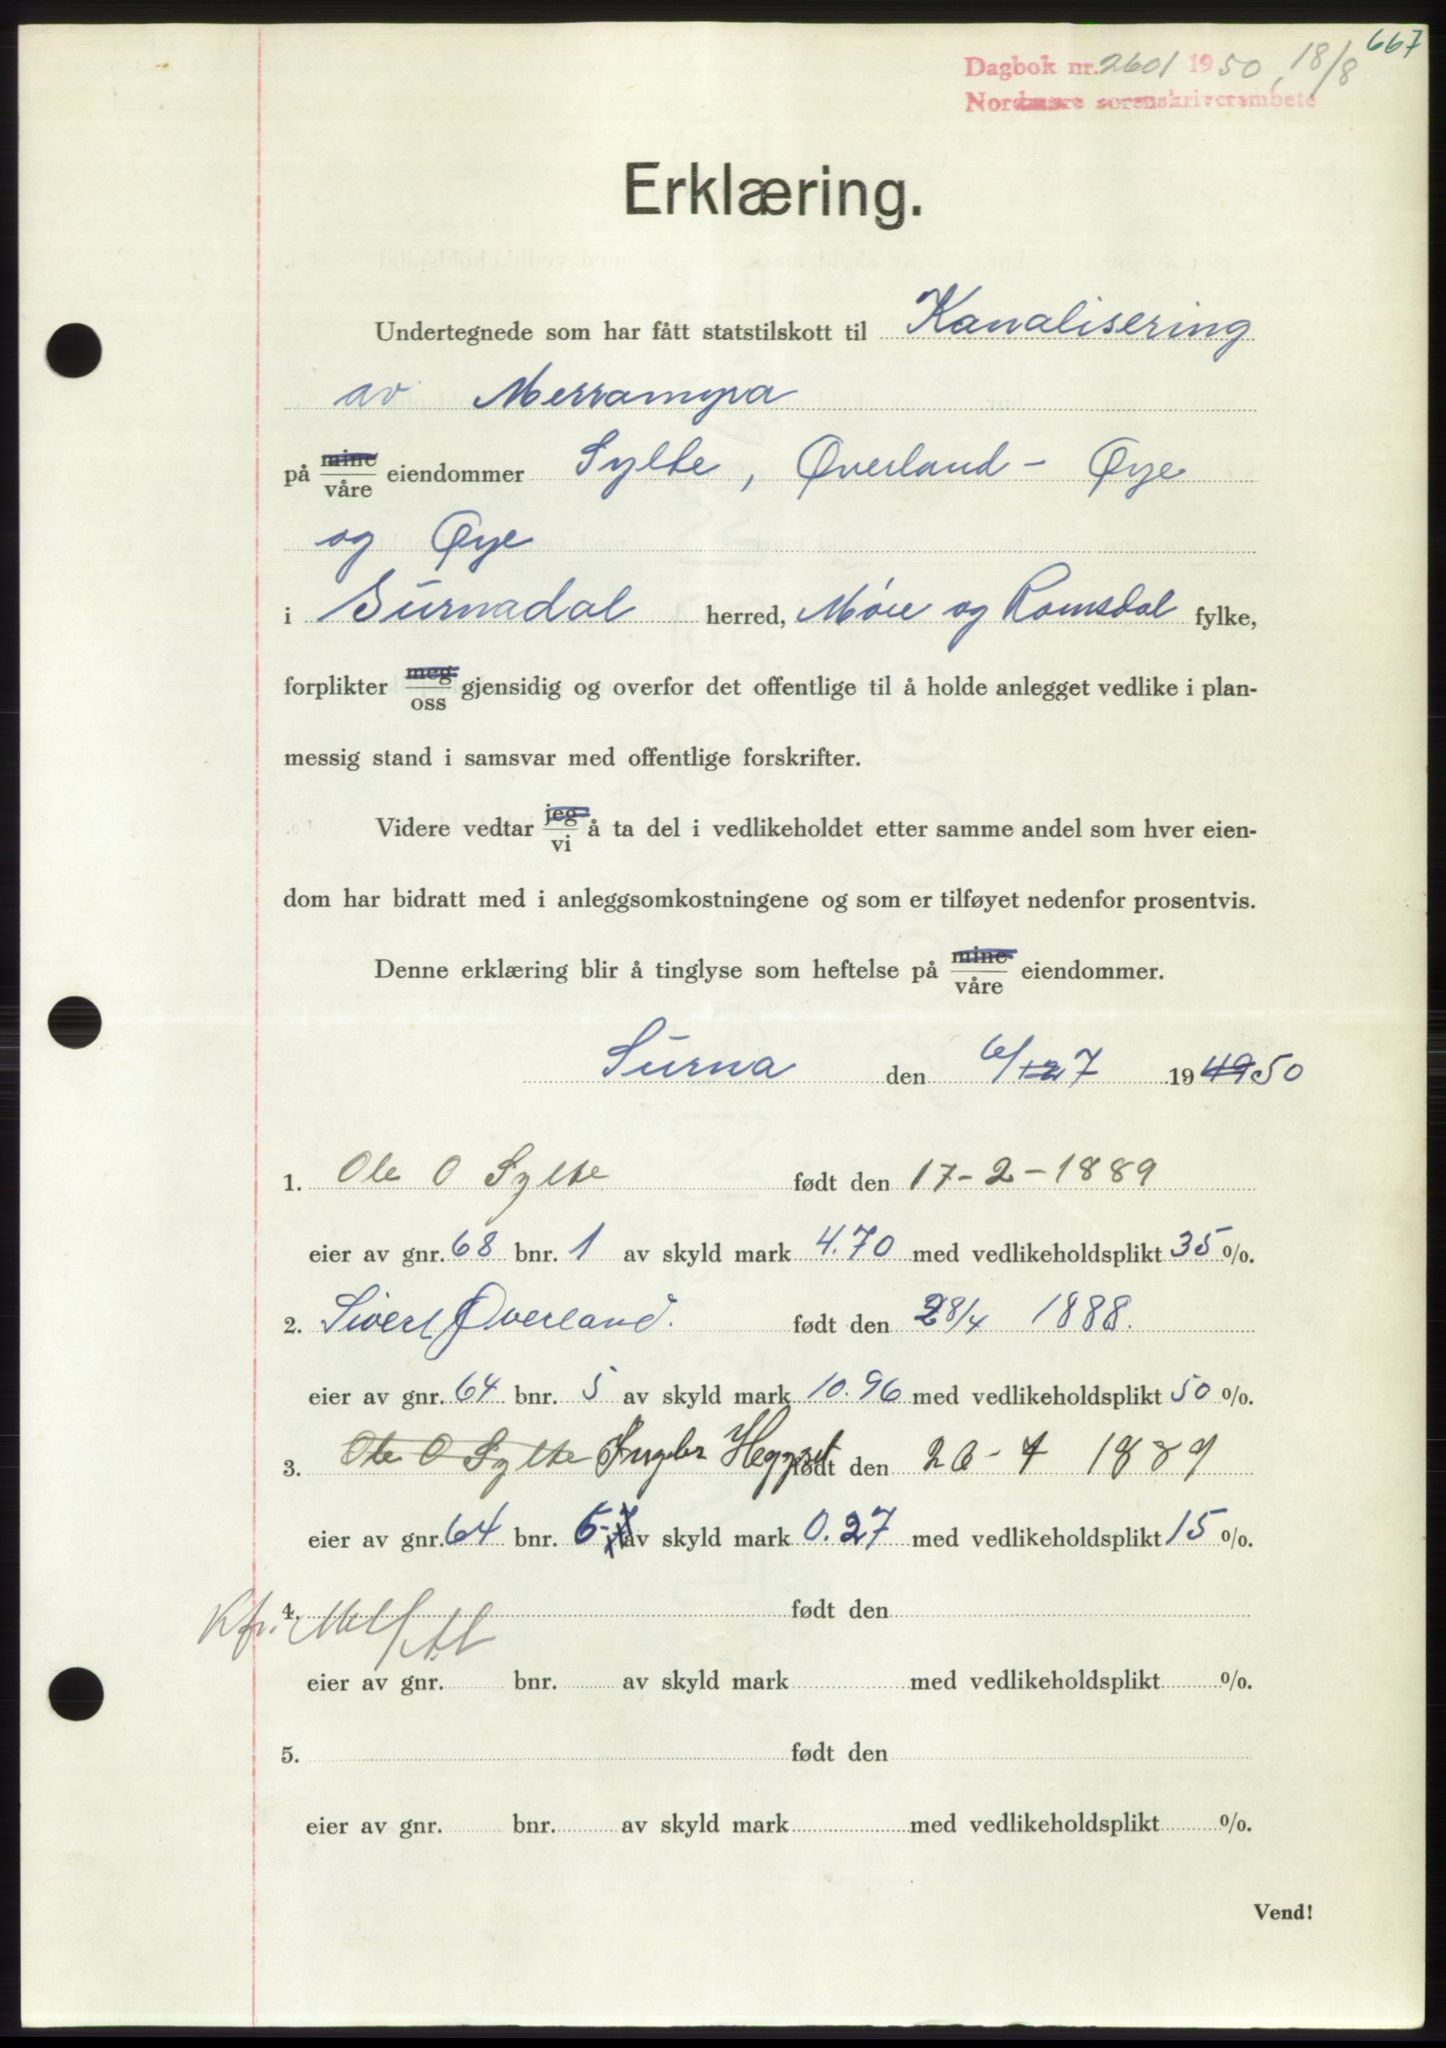 667
Dagbok nr. 2601 1950, 18/8
Nordmøre sorenskriverembete
Erklæring.
Undertegnede som har fått statstilskott til Kanalisering
av Merramyra
på mine/våre eiendommer Sylte, Øverland - Øye
og Øye
i Surnadal herred, Møre og Romsdal fylke,
forplikter meg/oss gjensidig og overfor det offentlige til å holde anlegget vedlike i plan-
messig stand i samsvar med offentlige forskrifter.
Videre vedtar jeg/vi å ta del i vedlikeholdet etter samme andel som hver eien-
dom har bidratt med i anleggsomkostningene og som er tilføyet nedenfor prosentvis.
Denne erklæring blir å tinglyse som heftelse på mine/våre eiendommer.
Surna den 6/12 7 1949 50
1. Ole O Sylte født den 17-2-1889
eier av gnr. 68 bnr. 1 av skyld mark 4.70 med vedlikeholdsplikt 35 %.
2. Sivert Øverland. født den 28/4 1888.
eier av gnr. 64 bnr. 5 av skyld mark 10.96 med vedlikeholdsplikt 50 %.
3. Ole O Sylte Heggset født den 26-4 1889
eier av gnr. 64 bnr. av skyld mark 0.27 med vedlikeholdsplikt 15 %.
4. født den
Kfr.
eier av gnr. bnr. av skyld mark med vedlikeholdsplikt %.
5. født den
eier av gnr. bnr. av skyld mark med vedlikeholdsplikt %.
Vend!